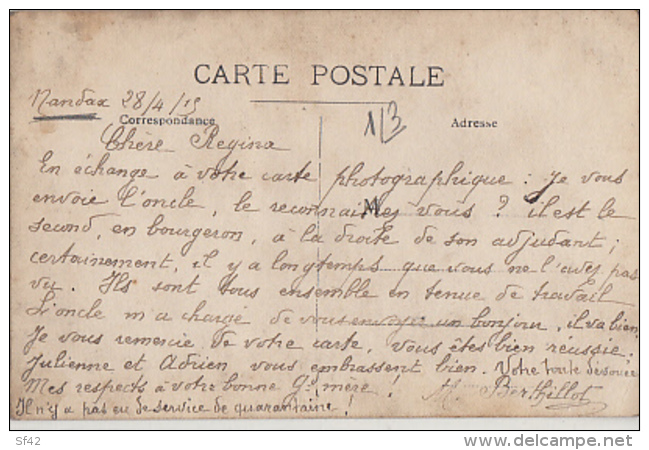 CARTE POSTALE
Nandax 28/4/15
1/3
Correspondance
Adresse
Chère Regina
En échange à votre carte photographique : Je vous
envoie l'oncle, le reconnaîtes vous ? il est le
second, en bourgeron, à la droite de son adjudant ;
certainement, il y a longtemps que vous ne l'avez pas
vu. Ils sont tous ensemble en tenue de travail
L'oncle m a chargé de vous envoyer un bonjour, il va bien,
Je vous remercie de votre carte, vous êtes bien réussie,
Julienne et Adrien vous embrassent bien. Votre toute dévouée
Mes respects à votre bonne Gd mère ! Berthillot
Il n'y a pas eu de service de quarantaine !
Sf42
http://www.delcampe.net